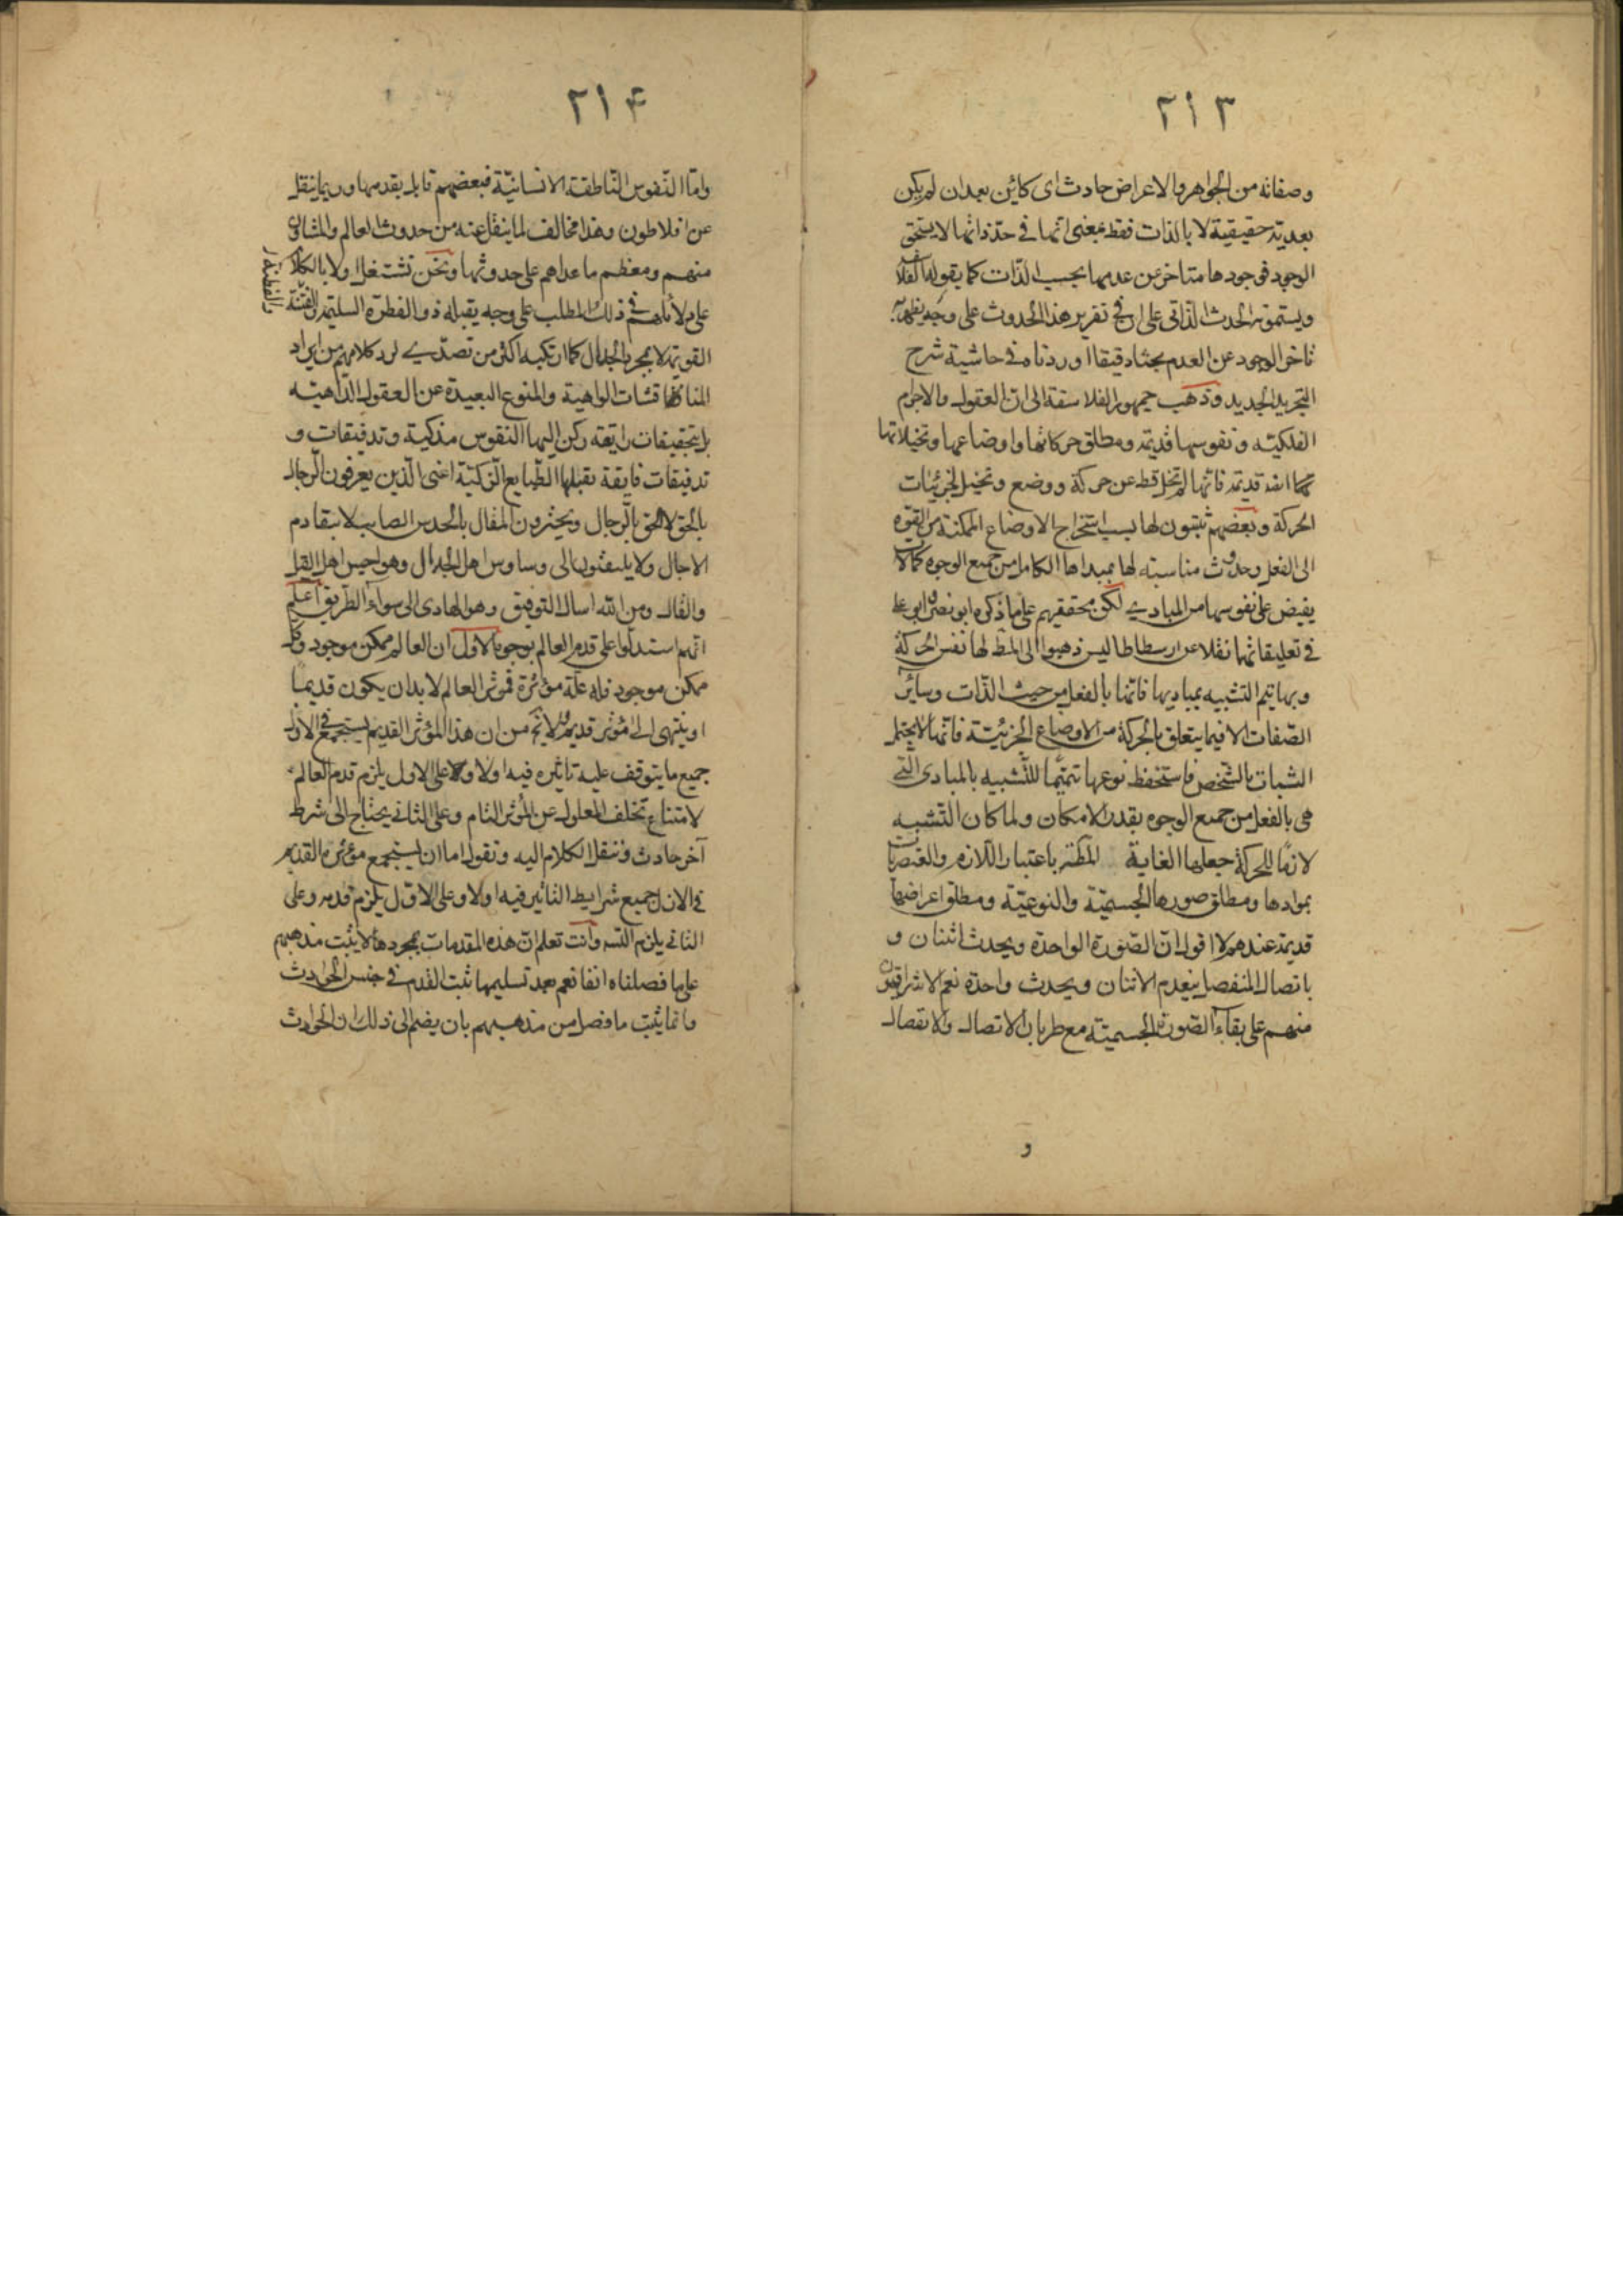 ٢١٣
وصفاته من الجواهر والاعراض حادث اى كائن بعد ان لم يكن
بعدية حقيقية لا بالذات فقط بمعنى انها فى حد ذاتها لا يستحق
الوجود فوجودها متاخر عن عدمها بحسب الذات كما يقوله الفلاسفة
ويسمونه الحدث الذاتى على ان فى تقرير هذا الحدوث على وجه يظهر به
تاخر الوجود عن العدم بحثا دقيقا اوردناه فى حاشية شرح
التجريد الجديد وذهب جمهور الفلاسفة الى ان العقول والاجرام
الفلكية ونفوسها قديمة ومطلق حركاتها واوضاعها وتخيلاتها
ايضا قديمة فانها لم تخل قط عن حركة ووضع وتخيل لجزئيات
الحركة وبعضهم يثبتون لها بسبب استخراج الاوضاع الممكنة من القوة
الى الفعل وحدوث مناسبة لها بمبدأها الكامل من جميع الوجوه كمالات
يفيض على نفوسها من المبادى لكن محققيهم على ما ذكره ابو نصر وابو على
فى تعليقاتهما نقلا عن ارسطاطاليس ذهبوا الى المط لها نفس الحركة
وبها يتم التشبيه بمباديها فانها بالفعل من حيث الذات وسائر
الصفات الا فيما يتعلق بالحركة من الاوضاع الجزئية فانها لا يحتمل
الثبات بالشخص فاستحفظ نوعها تتميما للتشبيه بالمبادى التى
هى بالفعل من جميع الوجوه بقدر الامكان ولما كان التشبه
لازما للحركة جعلها الغاية المط باعتبار اللازم والعنصريات
بموادها ومطلق صورها الجسمية والنوعية ومطلق اعراضها
قديمة عندهم لا اقول ان الصورة الواحدة ويحدث اثنان و
باتصال المنفصل ينعدم الاثنان ويحدث واحدة نعم الاشراقيون
منهم على بقاء الصورة الجسمية مع طريان الاتصال والانفصال
و
٢١۴
واما النفوس الناطقة الانسانية فبعضهم قايل بقدمها وربما ينقل
عن افلاطون وهذا مخالف لما ينقل عنه من حدوث العالم والمشاؤن
منهم ومعظم ما عداهم على حدوثها ونحن نشتغل اولا بالكلام
على دلائلهم فى ذلك المطلب على وجه يقبله ذو الفطرة السليمة والفتنة
القويمة لا مجرد الجدال كما ارتكبه اكثر من تصدى لرد كلامهم من ايراد
المناقشات الواهية والمنوع البعيدة عن العقول الذاهية
بل بتحقيقات رايقة ركن اليها النفوس مذكية وتدقيقات و
تدقيقات فايقة تقبلها الطبايع الزكية اعنى الذين يعرفون الرجال
بالحق لا الحق بالرجال ويحترون المقال بالحدس الصايب لا بتقادم
الاجال ولا يلتفتون الى وساوس اهل الجدال وهواجس اهل القيل
والقال ومن الله اسال التوفيق وهو الهادى الى سواء الطريق اعلم
انهم استدلوا على قدم العالم بوجوه الاول ان العالم ممكن موجود وكل
ممكن موجود فله علة مؤثرة فموثر العالم لا بد ان يكون قديما
او ينتهى الى مؤثر قديم ولا يخ من ان هذا المؤثر القديم يستجمع فى الازل
جميع ما يتوقف عليه تاثيره فيه اولا وعلى الاول يلزم قدم العالم
لامتناع تخلف المعلول عن المؤثر التام وعلى الثانى يحتاج الى شرط
آخر حادث وننقل الكلام اليه ونقول اما ان يستجمع مؤثره القديم
فى الازل جميع شرايط التاثير فيه اولا وعلى الاول يلزم قدمه وعلى
الثانى يلزم التسه وانت تعلم ان هذه المقدمات بمجردها لا يثبت مذهبهم
على ما فصلناه انفا نعم بعد تسليمها ثبت القدم فى جنس الحوادث
وانما يثبت ما فصل من مذهبهم بان يضم الى ذلك ان الحوادث